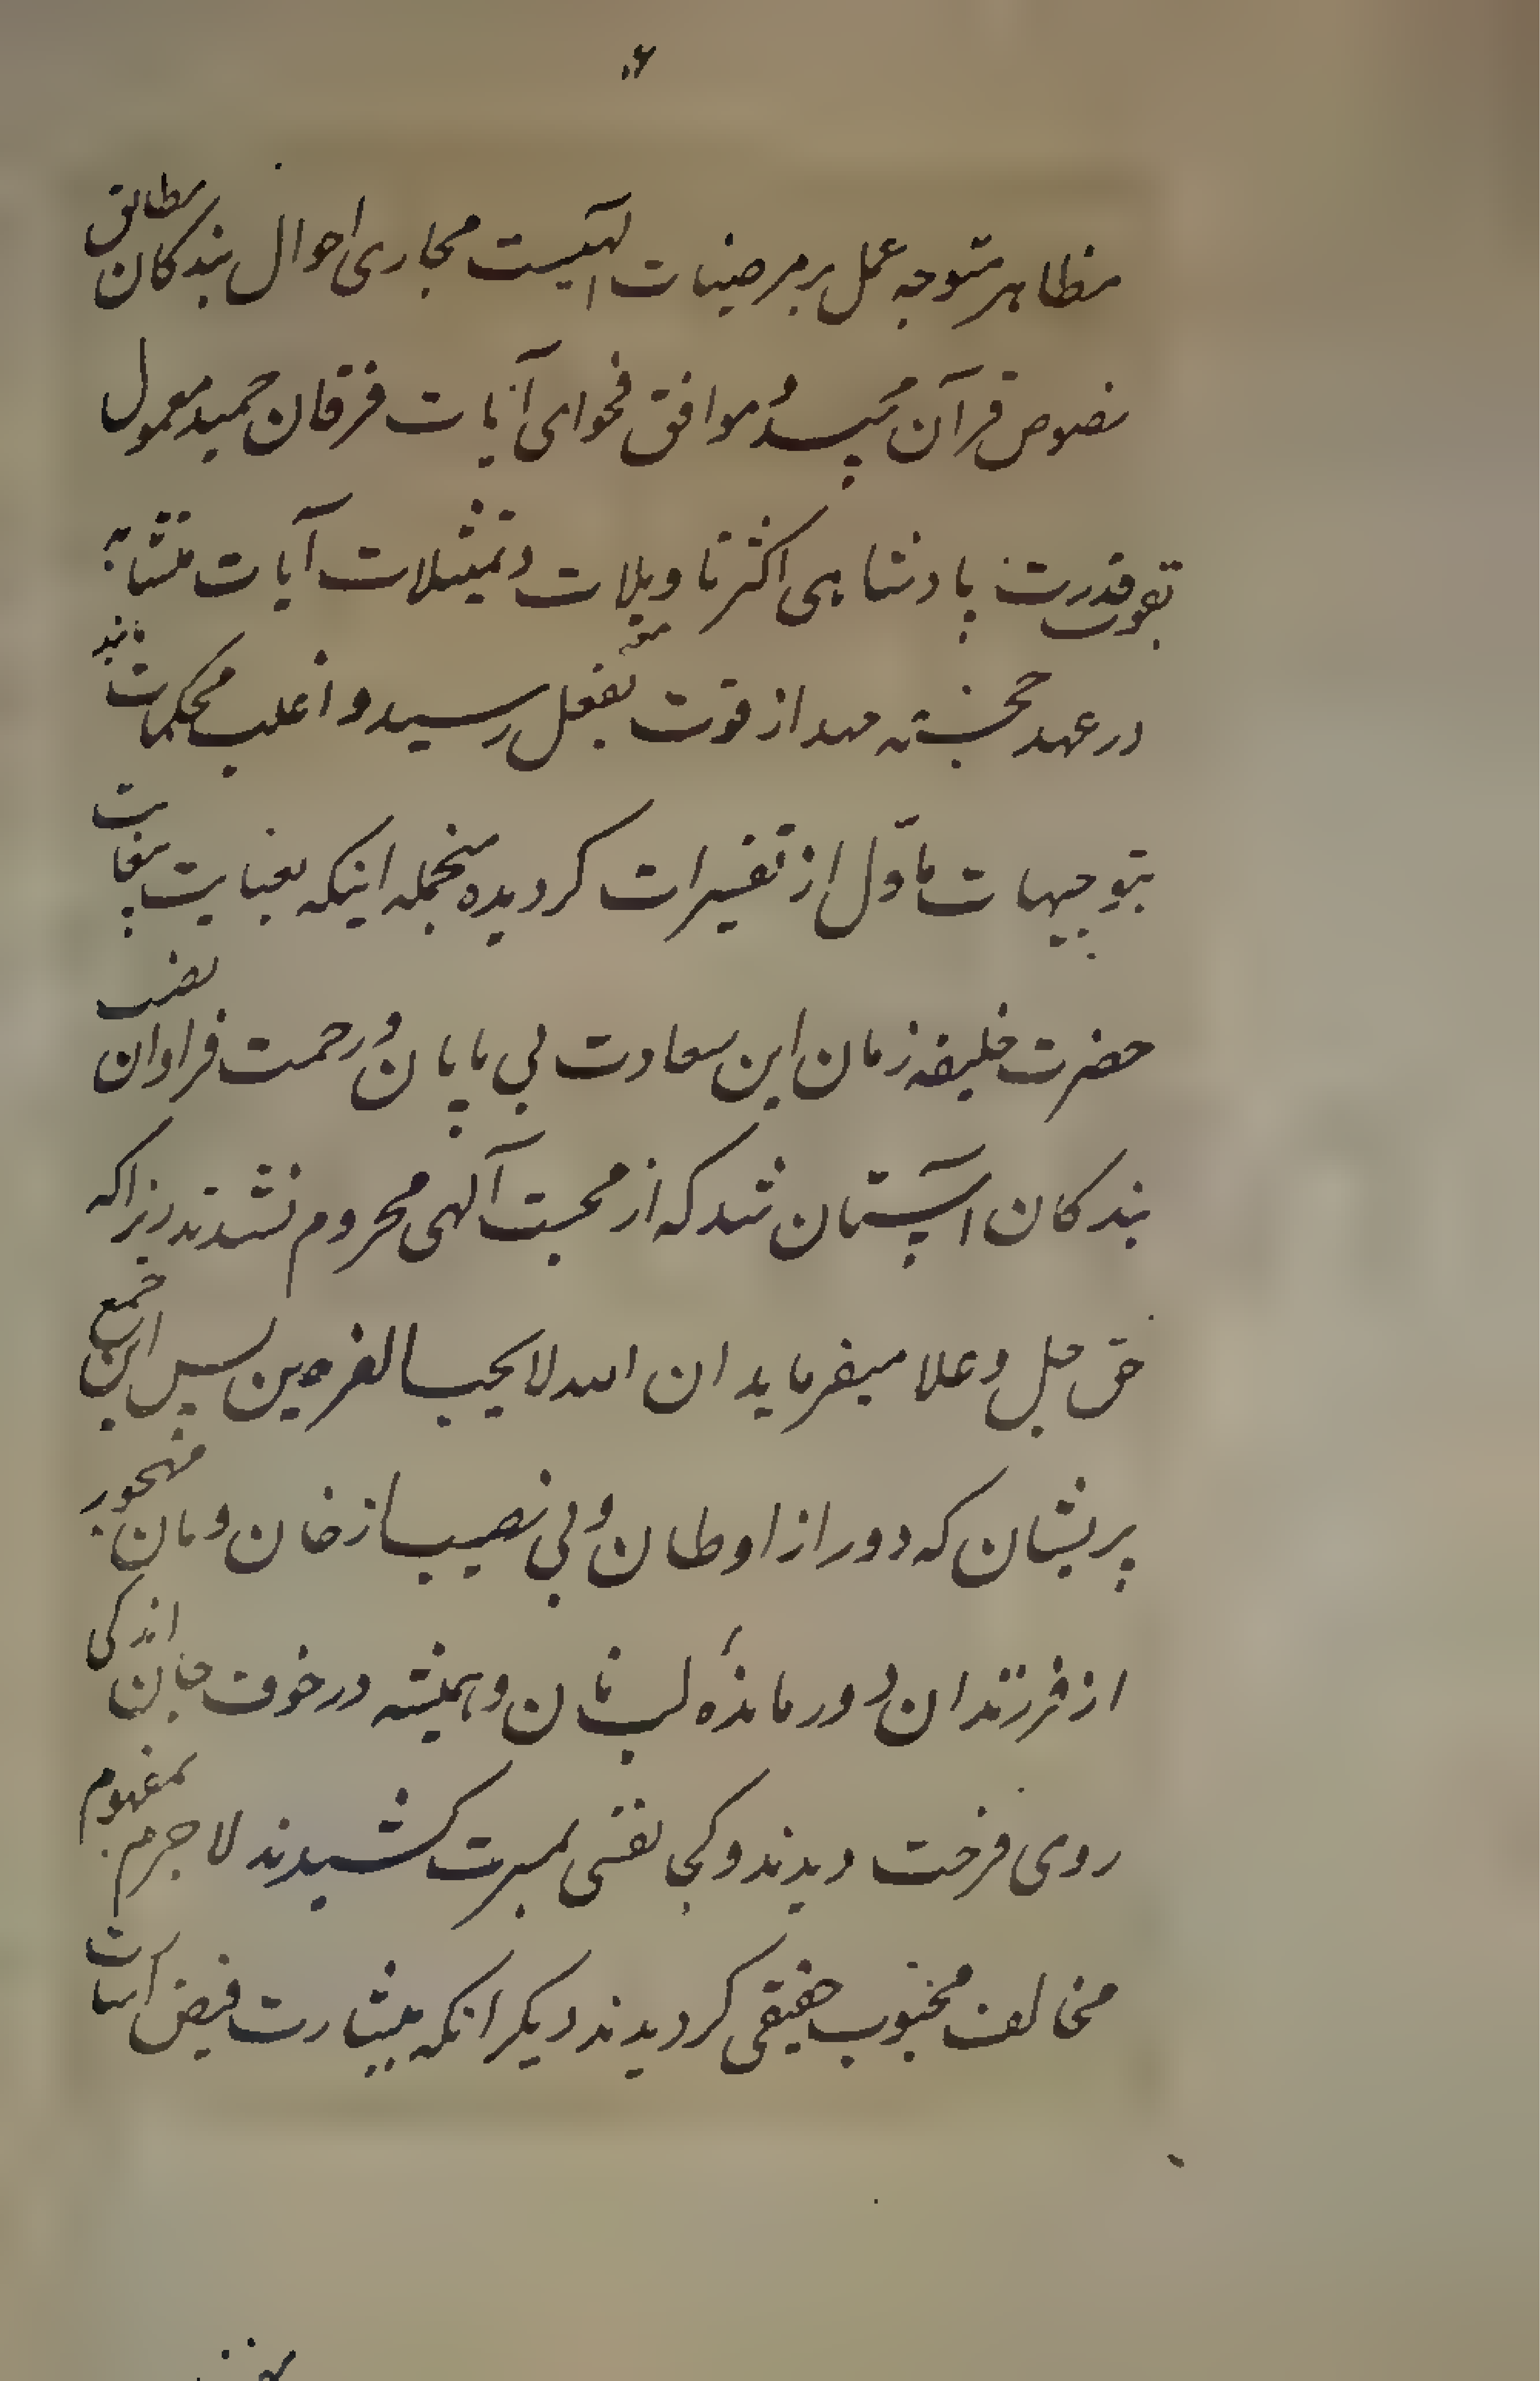 ۶
مظاهر متوجه عمل بر مرضیات الهیست مجاری احوال بندکان مطابق
نصوص قرآن مجید و موافق فحوای آیات فرقان حمید معمول
بقوت قدرت پادشاهی اکثر تاویلات و تمثیلات آیات متشابه
در عهد خجسته مهد از قوت بفعل رسید و اغلب محکمات
بتوجیهات ماوّل از تفسیرات کردیده منجمله اینکه بعنایت بیغایت
حضرت خلیفه زمان این سعادت بی پایان و رحمت فراوان نصیب
بندکان آستان شد که از محبت الهی محروم نشدند زیراکه
حق جل و علا میفرماید ان الله لا یحب الفرحین پس این جمع
پریشان که دور از اوطان و بی نصیب از خان و مان مهجور
از فرزندان و درمانده لب نان و همیشه در خوف جان اندکی
روی فرحت دیدند و کی نفسی بمسرت کشیدند لاجرم بمفهوم
مخالف محبوب حقیقی کردیدند دیکر انکه ببشارت فیض آیات